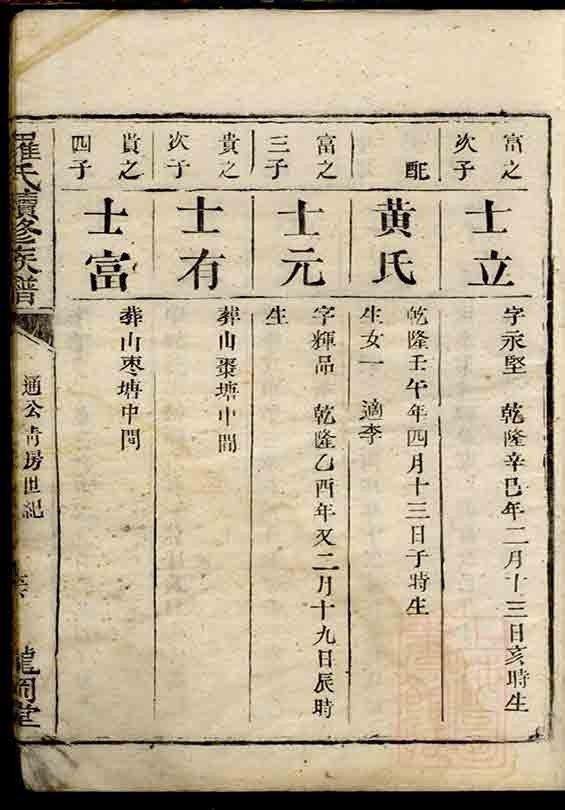 富之
次子
士立
字永堅 乾隆辛巳年二月十三日亥時生
配
黃氏
乾隆壬午年四月十三日子時生
生女一 適李
富之
三子
士元
字輝品 乾隆乙酉年又二月十九日辰時
生
貴之
次子
士有
葬山棗塘中間
貴之
四子
士富
葬山枣塘中間
羅氏續修族譜
通公房世紀
龍岡堂